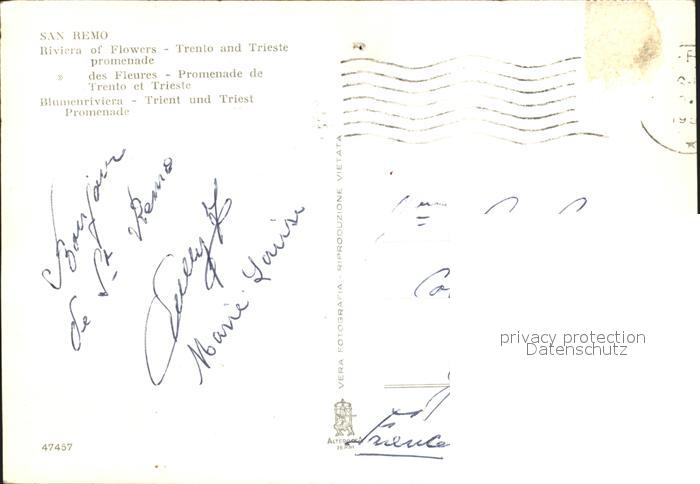 SAN REMO
Riviera of Flowers - Trento and Trieste
promenade
» des Fleures - Promenade de
Trento et Trieste
Blumenriviera - Trient und Triest
Promenade
Bonjour
de St Remo
Marie Louise
VERA FOTOGRAFIA - RIPRODUZIONE VIETATA
privacy protection
Datenschutz
France
47457